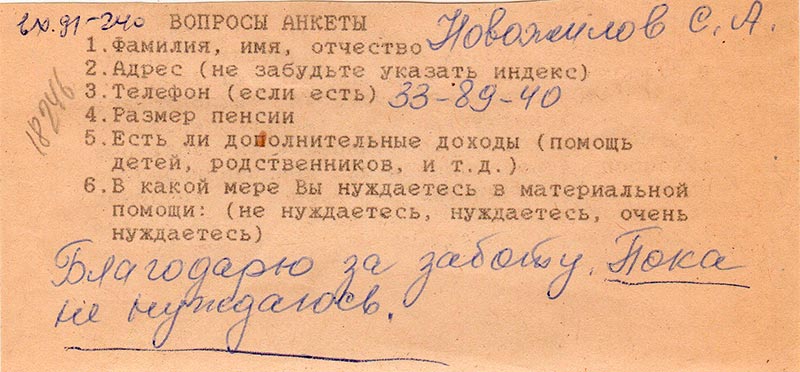 вх.91-240 ВОПРОСЫ АНКЕТЫ
1.Фамилия, имя, отчество Новожилов С.А.
2.Адрес (не забудьте указать индекс)
3.Телефон (если есть) 33-89-40
4.Размер пенсии
5.Есть ли дополнительные доходы (помощь
детей, родственников, и т.д.)
6.В какой мере Вы нуждаетесь в материальной
помощи: (не нуждаетесь, нуждаетесь, очень
нуждаетесь)
Благодарю за заботу. Пока
не нуждаюсь.
18246